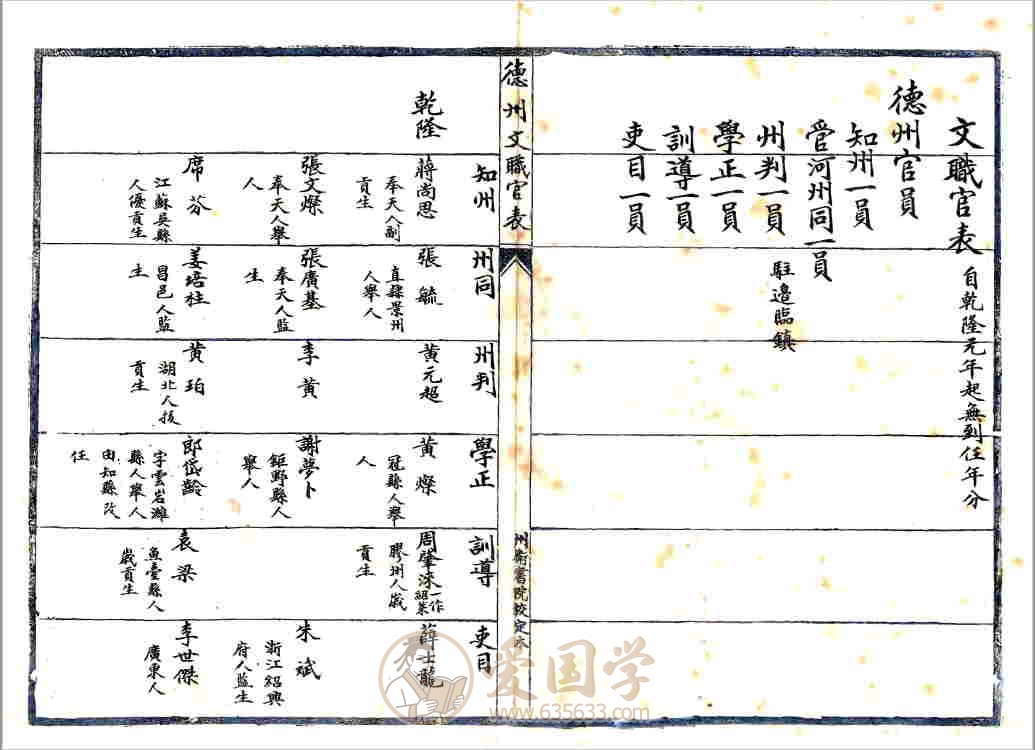 文職官表 自乾隆元年起無到任年分
德州官員
知州一員
管河州同一員
州判一員 駐邊臨鎮
學正一員
訓導一員
吏目一員
德州文職官表
州衛書院校定本
知州
州同
州判
學正
訓導
吏目
乾隆
蔣尚思
奉天人副
貢生
張毓
直隸景州
人舉人
黃元超
黃燦
冠縣人舉
人
周肇洙一作
紹洙
膠州人歲
貢生
薛士龍
張文燦
奉天人舉
人
張廣基
奉天人監
生
李黃
謝夢卜
鉅野縣人
舉人
朱斌
浙江紹興
府人監生
席芬
江蘇吳縣
人優貢生
姜培柱
昌邑人監
生
黃珀
湖北人拔
貢生
郎岱齡
字雲岩濰
縣人舉人
由知縣改
任
袁梁
魚臺縣人
歲貢生
李世傑
廣東人
爱国学
www.635633.com